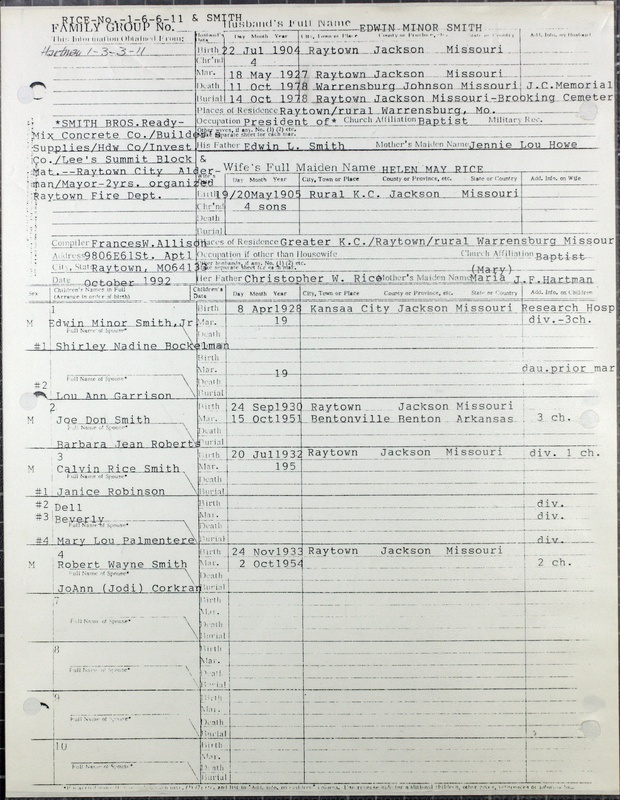 RICE-No. 1-6-6-11 & SMITH
FAMILY GROUP No. Husband's Full Name EDWIN MINOR SMITH
This Information Obtained From: Husband's Data Day Month Year City, Town or Place County or Province, etc. State or Country Add. Info. on Husband
Hartman 1-3-3-11
Birth 22 Jul 1904 Raytown Jackson Missouri
Chr'nd 4
Mar. 18 May 1927 Raytown Jackson Missouri
Death 11 Oct 1978 Warrensburg Johnson Missouri J.C.Memorial
Burial 14 Oct 1978 Raytown Jackson Missouri-Brooking Cemeter
Places of Residence Raytown/rural Warrensburg, Mo.
*SMITH BROS.Ready- Occupation President of* Church Affiliation Baptist Military Rec.
Mix Concrete Co./Builder's Other wives, if any, No. (1) (2) etc. Make separate sheet for each mar.
Supplies/Hdw Co/Invest. His Father Edwin L. Smith Mother's Maiden Name Jennie Lou Howe
Co./Lee's Summit Block &
Mat.--Raytown City Alder- Wife's Full Maiden Name HELEN MAY RICE
man/Mayor-2yrs. organized Day Month Year City, Town or Place County or Province, etc. State or Country Add. Info. on Wife
Raytown Fire Dept. Birth 19/20May1905 Rural K.C. Jackson Missouri
Chr'nd 4 sons
Death
Burial
Compiler FrancesW.Allison Places of Residence Greater K.C./Raytown/rural Warrensburg Missour
Address 9806E61St. Apt1 Occupation if other than Housewife Church Affiliation Baptist
City, State Raytown, MO64133 Other husbands, if any, No. (1) (2) etc. Make separate sheet for each mar. (Mary)
Date October 1992 Her Father Christopher W. Rice Mother's Maiden Name Maria J.F.Hartman
Sex Children's Names in Full (Arrange in order of birth) Children's Data Day Month Year City, Town or Place County or Province, etc. State or Country Add. Info. on Children
1 Birth 8 Apr1928 Kansaa City Jackson Missouri Research Hosp
M Edwin Minor Smith,Jr. Mar. 19 div.-3ch.
Full Name of Spouse* Death
#1 Shirley Nadine Bockelman Burial
Birth
Mar. 19 dau.prior mar
Full Name of Spouse* Death
#2 Lou Ann Garrison Burial
2 Birth 24 Sep1930 Raytown Jackson Missouri
M Joe Don Smith Mar. 15 Oct1951 Bentonville Benton Arkansas 3 ch.
Full Name of Spouse* Death
Barbara Jean Roberts Burial
3 Birth 20 Jul1932 Raytown Jackson Missouri div. 1 ch.
M Calvin Rice Smith Mar. 195
Full Name of Spouse* Death
#1 Janice Robinson Burial
#2 Dell Birth div.
#3 Beverly Mar. div.
Full Name of Spouse* Death
#4 Mary Lou Palmentere Burial div.
4 Birth 24 Nov1933 Raytown Jackson Missouri
M Robert Wayne Smith Mar. 2 Oct1954 2 ch.
Full Name of Spouse* Death
JoAnn (Jodi) Corkran Burial
7 Birth
Mar.
Full Name of Spouse* Death
Burial
8 Birth
Mar.
Full Name of Spouse* Death
Burial
9 Birth
Mar.
Full Name of Spouse* Death
Burial
10 Birth
Mar.
Full Name of Spouse* Death
Burial